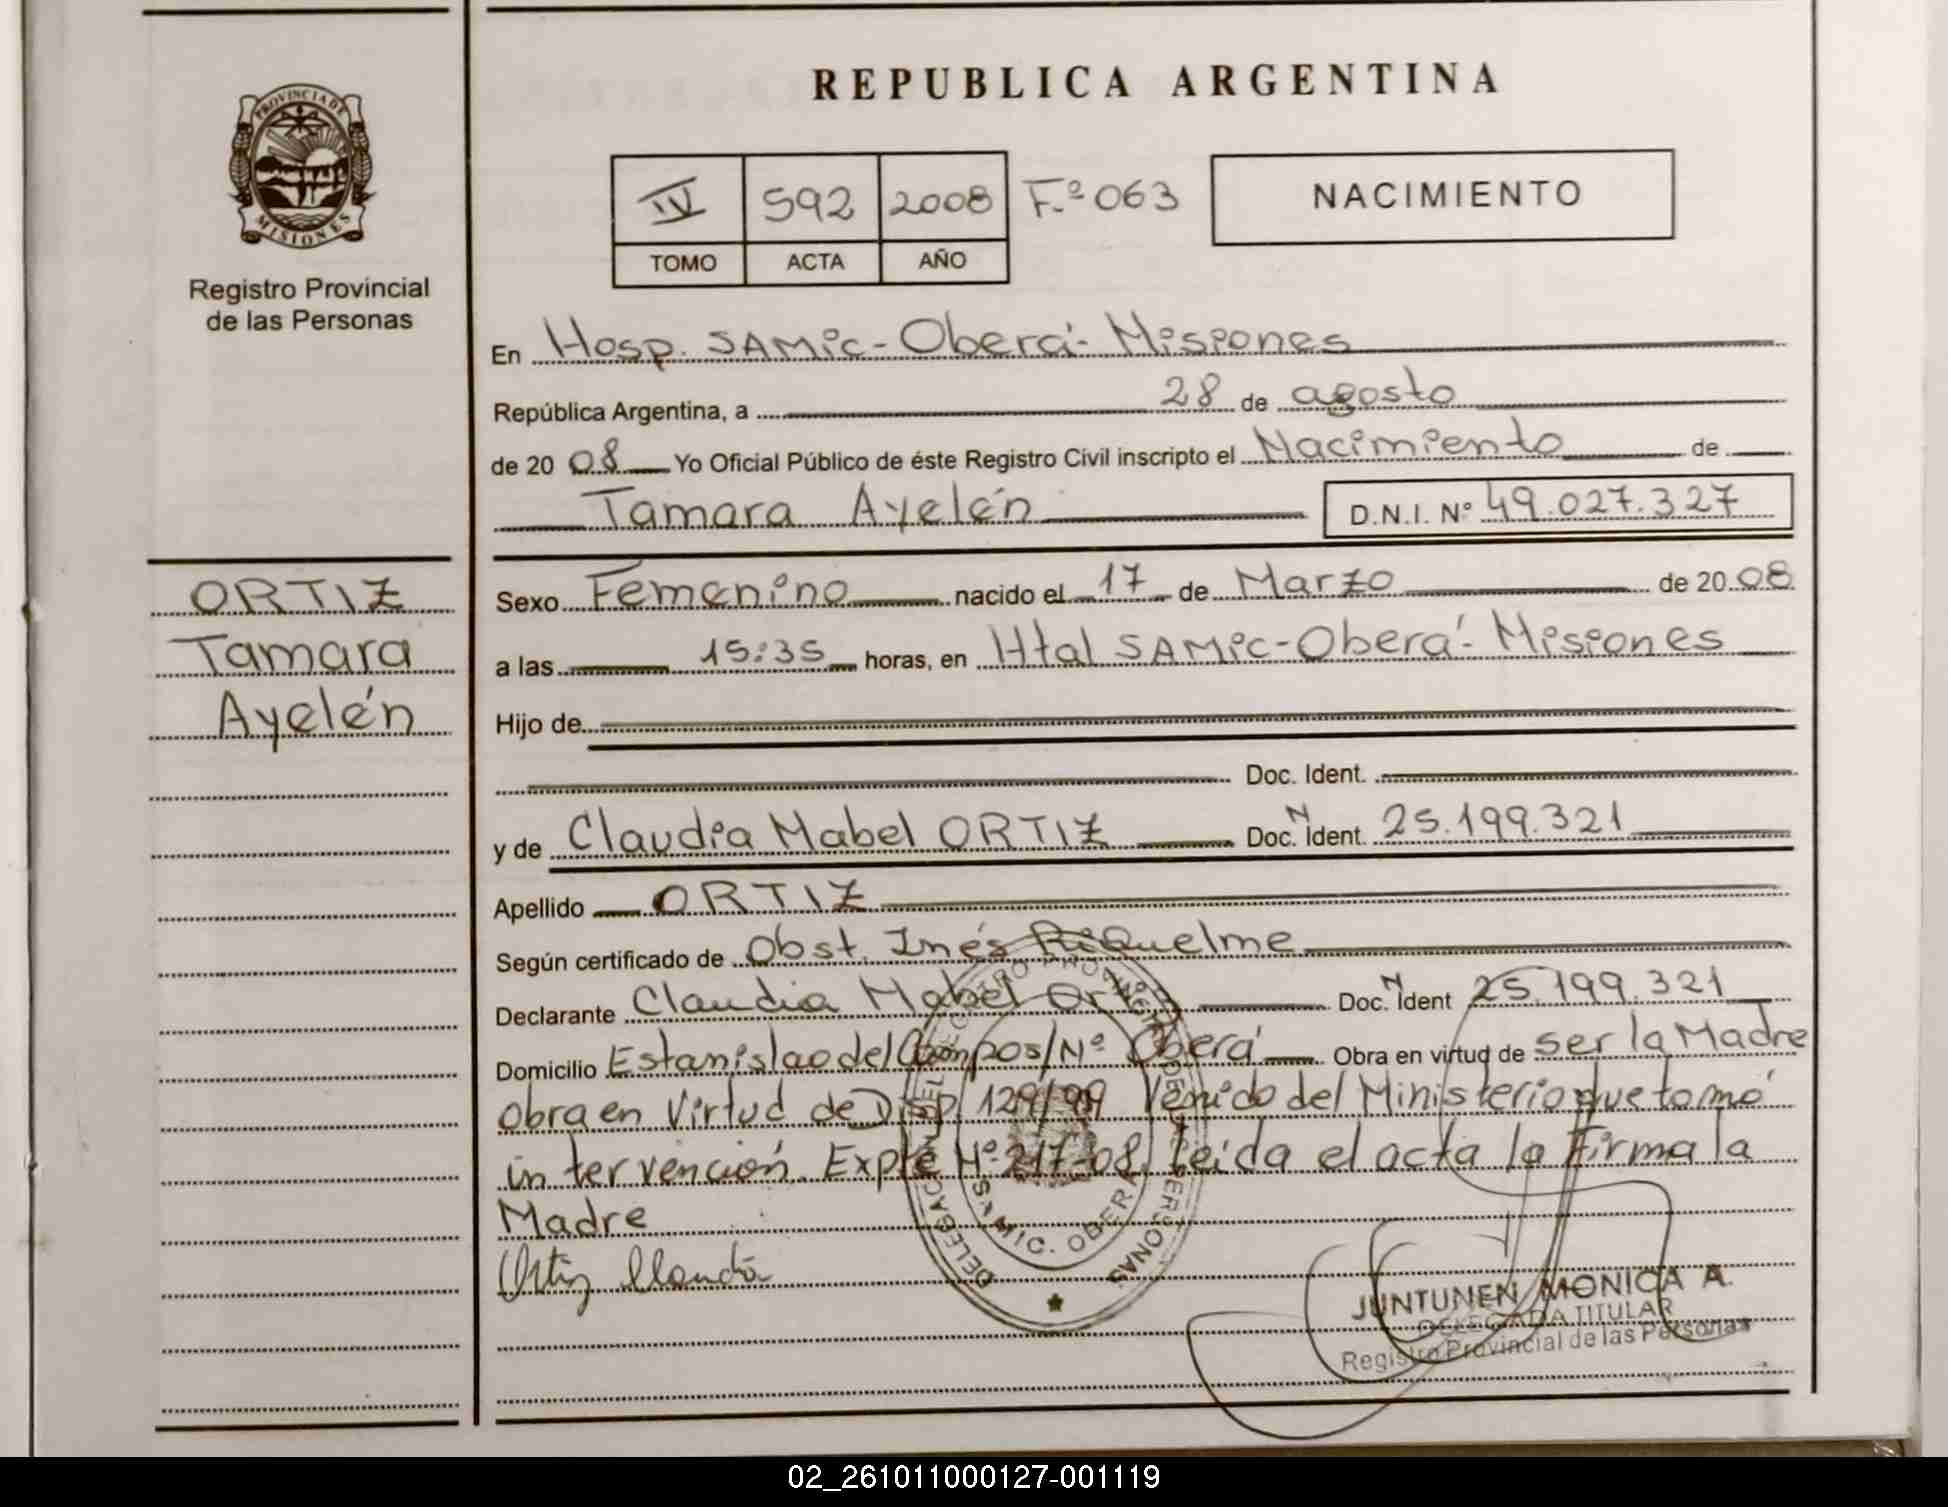 PROVINCIA DE
MISIONES
Registro Provincial
de las Personas
ORTIZ
Tamara
Ayelén
REPUBLICA ARGENTINA
IV 592 2008 F.º 063
TOMO ACTA AÑO
NACIMIENTO
En Hosp. SAMic - Oberá - Misiones
República Argentina, a 28 de agosto
de 20 08 Yo Oficial Público de éste Registro Civil inscripto el Nacimiento de
Tamara Ayelén D.N.I. Nº 49.027.327
Sexo Femenino nacido el 17 de Marzo de 20 08
a las 15:35 horas, en Htal SAMic - Oberá - Misiones
Hijo de
Doc. Ident.
y de Claudia Mabel ORTIZ Doc. N Ident. 25.199.321
Apellido ORTIZ
Según certificado de Obst. Inés Riquelme
Declarante Claudia Mabel Ortiz Doc. N Ident 25.199.321
Domicilio Estanislao del Campo s/Nº Oberá Obra en virtud de ser la Madre
Obra en Virtud de Disp 129/99 Venido del Ministerio que tomó
intervención. Expte Nº 217-08. Leída el acta la Firma la
Madre
Ortiz Claudia
DELEGACION
SAMIC. OBERA
JUNTUNEN MONICA A.
DELEGADA TITULAR
Registro Provincial de las Personas
02_261011000127-001119